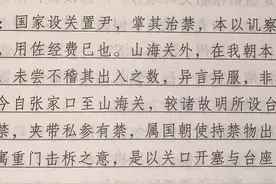 ：国家设关置尹，掌其治禁，本以讥察
用佐经费已也。山海关外，在我朝本
未尝不稽其出入之数，异言异服，非
今自张家口至山海关，较诸故明所设台
禁，夹带私参有禁，属国朝使持禁物出
寓重门击柝之意，是以关口开塞与台座